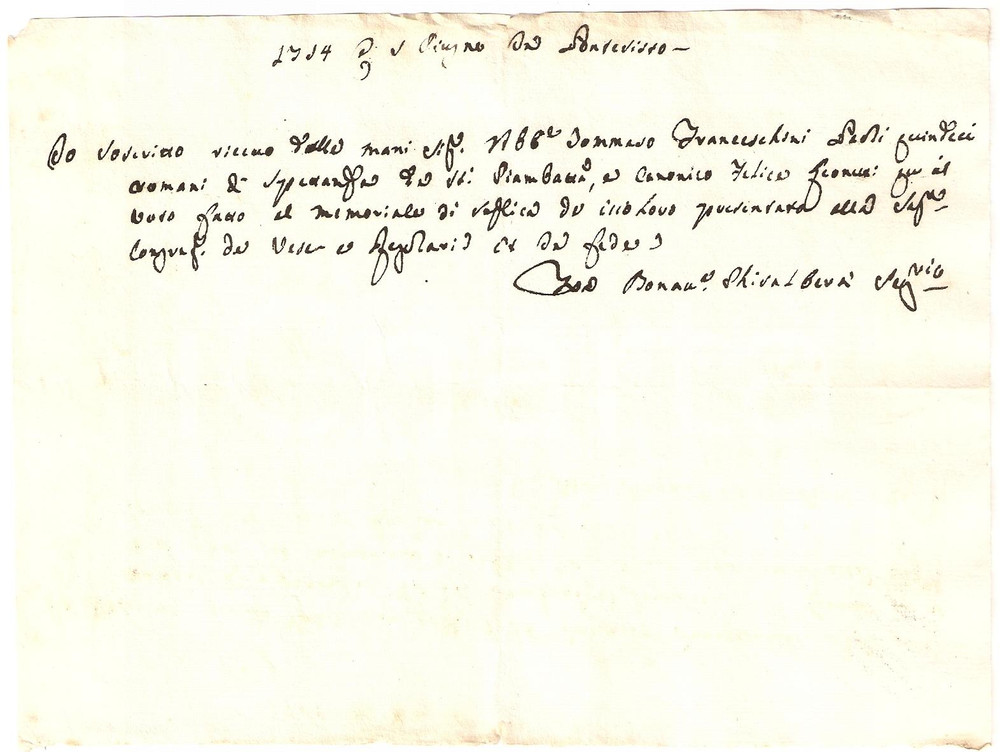 1714 di 5 Giugno in Ponsevisso
Io Soscritto riceuo dalle mani Sig.r Abb.e Tommaso Franceschini Paoli quindeci
romani di Speranza da SS.i Giambatta, e Canonico Felice per il
voto fatto al memoriale di suplica da essoloro presentata alla Sag.ra
Congreg. de Vesc. e Regolari et in fede
Bonau.a Ghisalberti Seg.rio